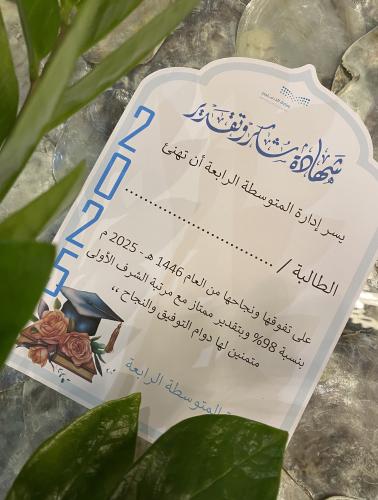 شهادة شكر وتقدير
يسر إدارة المتوسطة الرابعة أن تهنئ
الطالبة / ............................
على تفوقها ونجاحها من العام 1446 هـ - 2025 م
بنسبة 98% وبتقدير ممتاز مع مرتبة الشرف الأولى
متمنين لها دوام التوفيق والنجاح ،،
المتوسطة الرابعة
2025